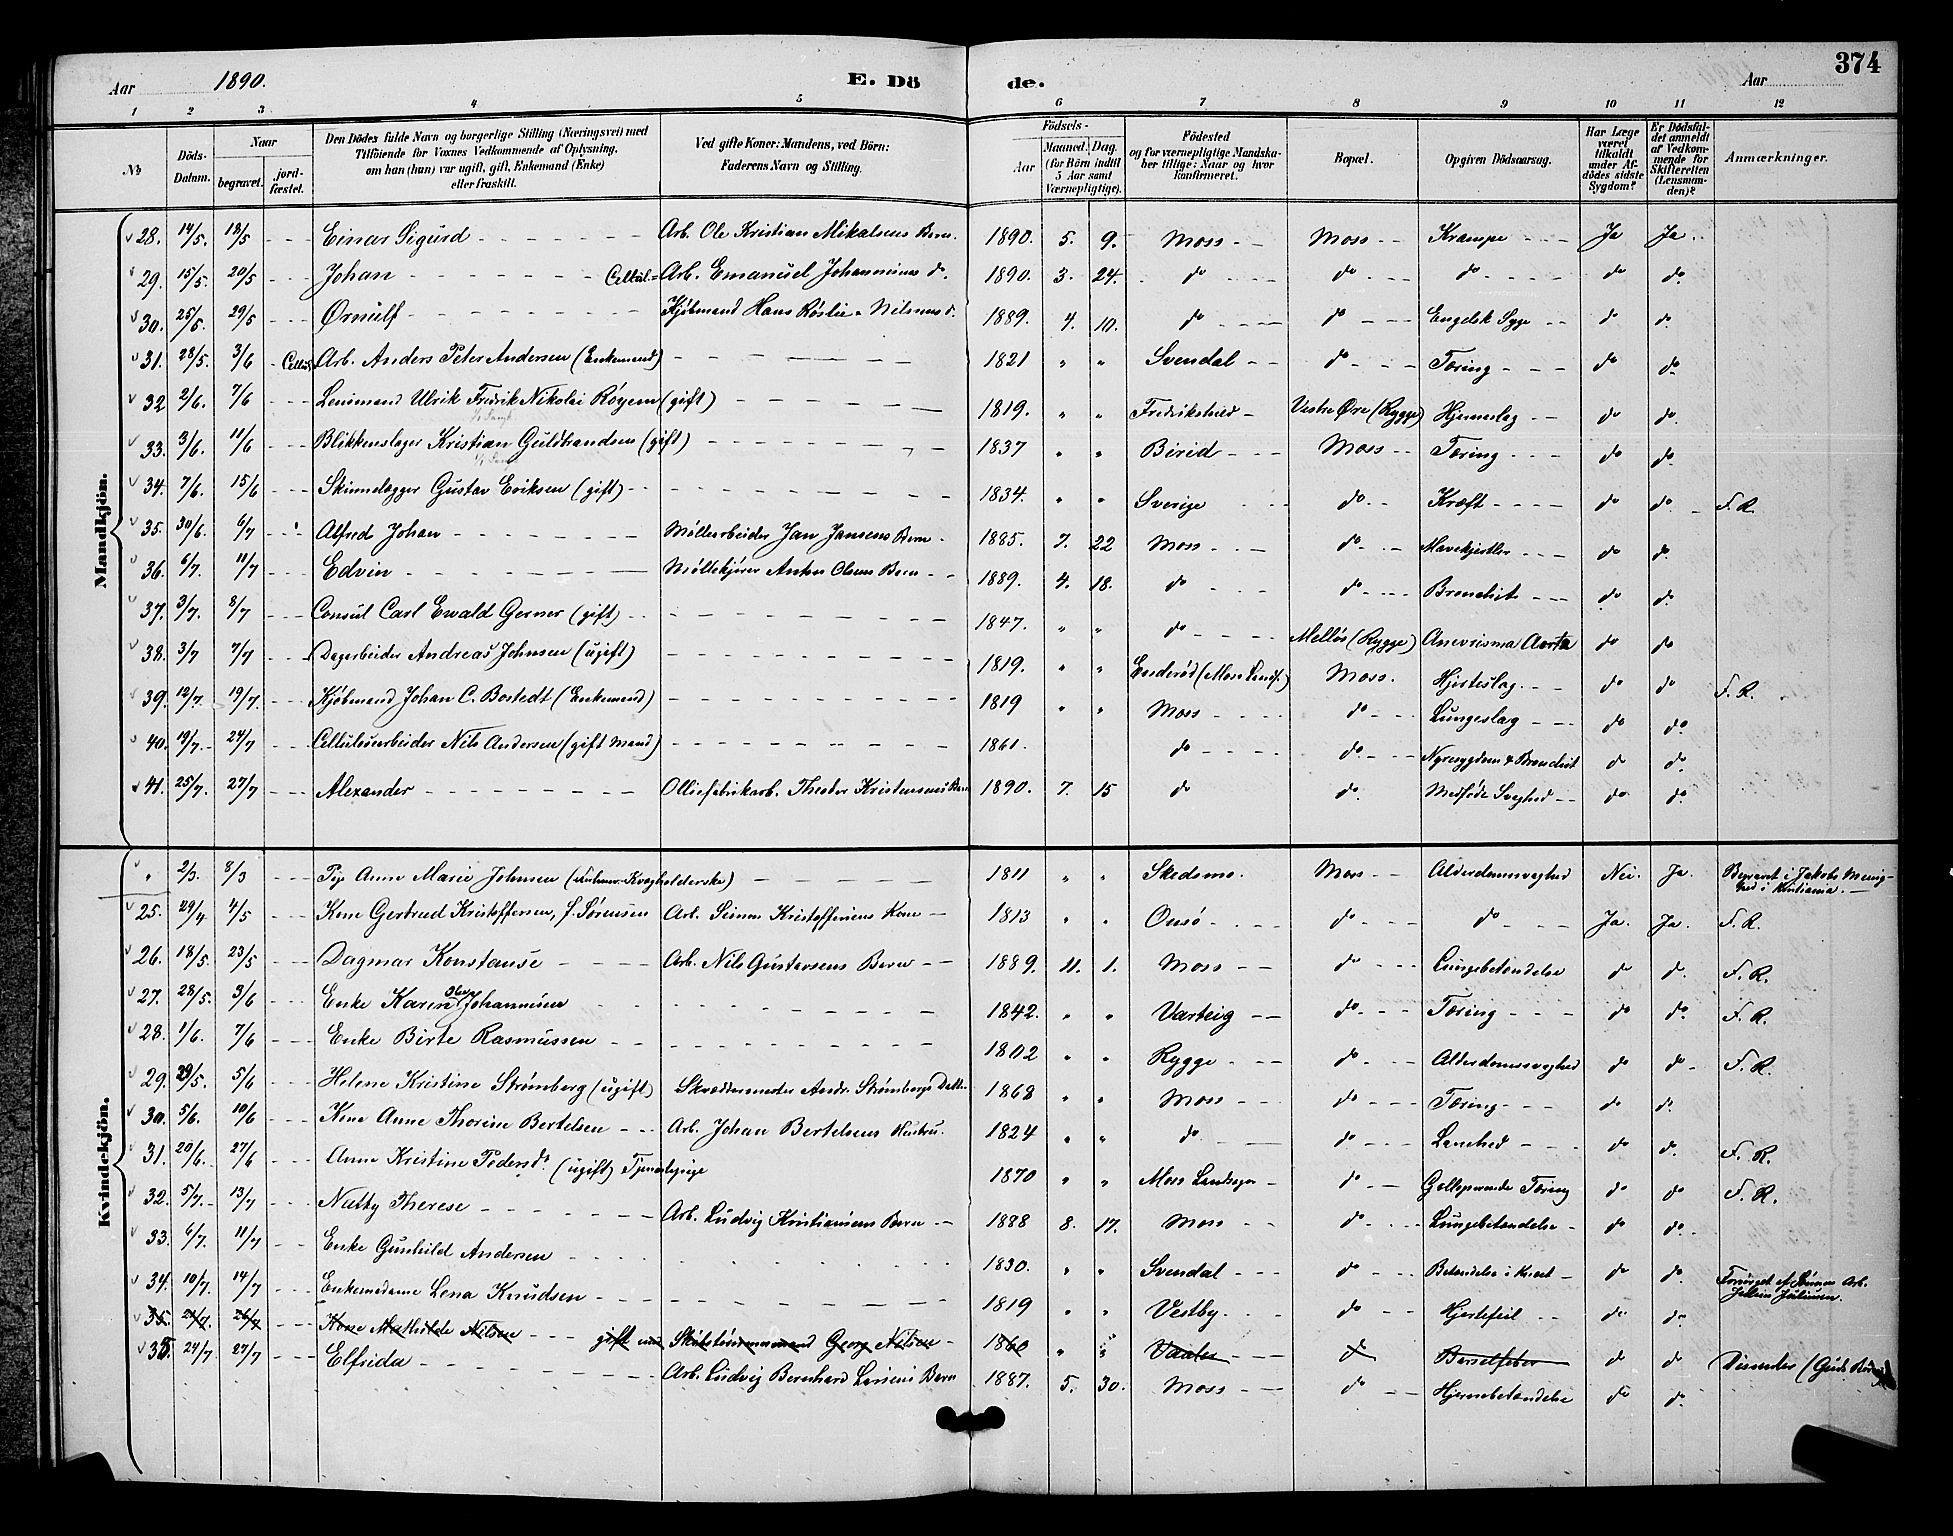 374
Aar 1890. E. Dö de. Aar
1 2 3 4 5 6 7 8 9 10 11 12
No Döds-Datum. Naar begravet. jordfæstet. Den Dödes fulde Navn og borgerlige Stilling (Næringsvei) med Tilföiende for Voxnes Vedkommende af Oplysning, om han (hun) var ugift, gift, Enkemand (Enke) eller fraskilt. Ved gifte Koner: Mandens, ved Börn: Faderens Navn og Stilling. Födsels- Aar Maaned. Dag. (for Börn indtil 5 Aar samt Værnepligtige). Födested og for værnepligtige Mandskaber tillige: Naar og hvor konfirmeret. Bopæl. Opgiven Dödsaarsag. Har Læge været tilkaldt under Afdödes sidste Sygdom? Er Dödsfaldet anmeldt af Vedkommende for Skifteretten (Lensmanden)? Anmærkninger.
Mandkjön.
28. 14/5. 18/5 Einar Sigurd Arb. Ole Kristian Mikalsens Barn. 1890. 5. 9. Moss Moss Krampe Ja Ja.
29. 15/5. 20/5 Johan Cellul= Arb. Emanuel Johannesens do. 1890. 3. 24. do do do do do.
30. 25/5. 29/5 Ørnulf Kjøbmand Hans Røslie - Nilsens d. 1889. 4. 10. do do Engelsk Syge do do.
31. 28/5. 3/6 Cellul. Arb. Anders Peter Andersen (Enkemand) 1821 " " Svendal do Tæring do do.
32 2/6. 7/6 Lensmand Ulrik Fredrik Nikolai Röyem (gift) 1819. " " Fredrikshed Vestre Øre (Rygge) Hjerneslag do do.
33. 3/6. 11/6 Blikkenslager Kristian Guldbrandsen (gift) 1837 " " Birid Moss Tæring do do.
34. 7/6. 15/6 Skindlægger Gustav Eriksen (gift) 1834. " " Sverige do Kræft do do F. R.
35. 30/6. 6/7 Alfred Johan Møllearbeider Jan Jansens Barn 1885. 7. 22 Moss do Mavekjertler do do.
36. 6/7. 11/7 Edvin Møllekjører Anton Olsens Barn 1889. 4. 18. do do Bronchit do do.
37. 3/7. 8/7 Consul Carl Ewald Gerner (gift) 1847. " " do Melløs (Rygge) Anevrisma Aorta do do
38. 3/7 7/7 Dagarbeider Andreas Johnsen (ugift) 1819. " " Enderød (Moss Lands.) Moss. Hjerteslag do do F. R.
39. 12/7 19/7. Kjøbmand Johan C. Bostedt (Enkemand) 1819 " " Moss do Lungeslag do do.
40. 19/7. 24/7 Cellulosearbeider Nils Andersen (gift Mand) 1861. do do Nyresygdom & Bronchit do do.
41. 25/7. 27/7 Alexander Olliefabrikarb. Theodor Kristensens Barn 1890. 7. 15 do do. Medfødt Svaghed do do.
Kvindekjön.
" 2/3. 8/3 Pige Anne Marie Johnsen 1811 " " Skedsmo. Moss Alderdomssvaghed Nei. Ja. Begravet i Jakobs Menighed i Kristiania.
25. 29/4 4/5 Kone Gertrud Kristoffersen, f. Sørensen Arb. Simon Kristoffersens Kone 1813 " " Onsø do do Ja. Ja. F. R.
26. 18/5. 23/5 Dagmar Konstanse Arb. Nils Gustavsens Barn 1889. 11. 1. Moss do Lungebetændelse do do. F. R.
27. 28/5. 3/6 Enke Karen Johannesen 1842. " " Varteig do Tæring do do. F. R.
28. 1/6. 7/6 Enke Birte Rasmussen 1802 " " Rygge do Alderdomssvaghed do do F. R.
29. 29/5. 5/6 Helene Kristine Strømberg (ugift) Skræddermester Andr. Strømbergs Datter 1868 " " Moss do Tæring do do.
30. 5/6. 10/6 Kone Anne Thorine Bertelsen Arb. Johan Bertelsens Hustru. 1824 " " do do Lamhed do do. F. R.
31. 20/6. 27/6 Anne Kristine Pedersdr. (ugift) Tjenestepige 1870 " " Moss Landsogn do Galloperende Tæring do do F. R.
32. 5/7. 13/7 Nathy Therese Arb. Ludvig Kristiansens Barn 1888 8. 17. Moss do Lungebetændelse do do.
33. 6/7. 11/7 Enke Gunhild Andersen 1830. " " Svendal do Betændelse i Knæet do do.
34. 10/7 14/7 Enkemadame Lena Knudsen 1819 " " Vestby do Hjertefeil do do. Forsørget af Sønnen Arb. Julius Juliussen.
35. 21/7. 26/7 Kone Mathilde Nilsen gift med Georg Nilsen 1860 " " Vaaler do Barselfeber do do
35. 24/7 27/7 Elfrida Arb. Ludvig Bernhard Larsens Barn 1887. 5. 30. Moss do Hjernebetændelse do do.